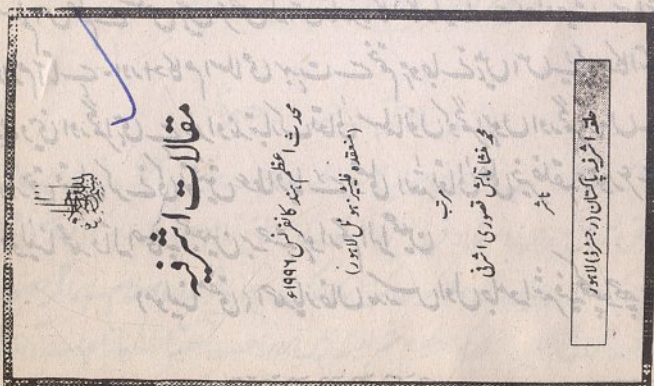 بسم اللہ الرحمن الرحیم
مقالات اشرفیہ
محدث اعظم ہند کانفرنس ۱۹۹۶ء
(منعقدہ فلیٹیز ہوٹل لاہور)
مرتب
محمد منشا تابش قصوری اشرفی
ناشر
حلقہ اشرفیہ پاکستان (رجسٹرڈ) لاہور